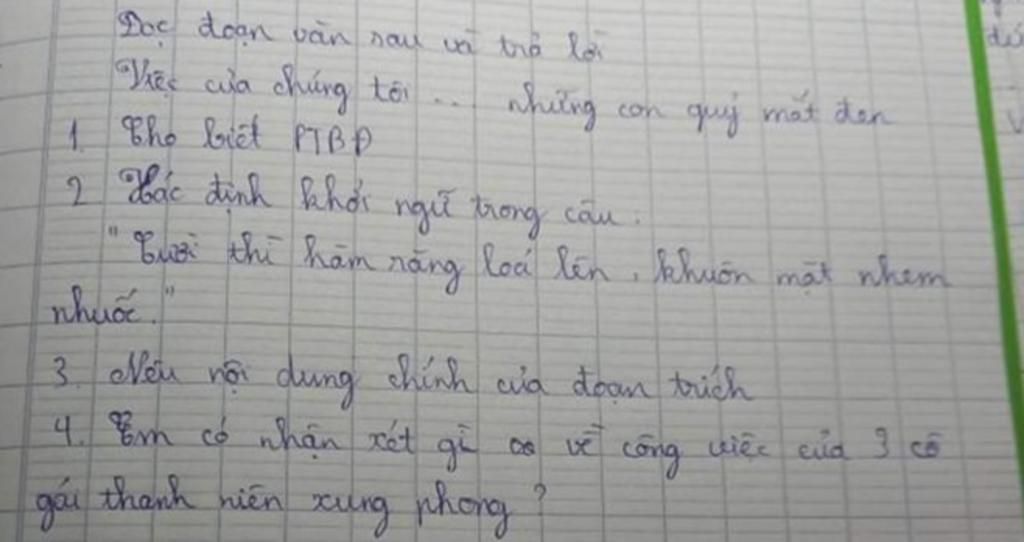 Đọc đoạn văn sau và trả lời
"Việc của chúng tôi ... những con quỷ mắt đen
1. Cho biết PTBĐ
2 Xác định khởi ngữ trong câu.
"Cười thì hàm răng loá lên, khuôn mặt nhem
nhuốc."
3. Nêu nội dung chính của đoạn trích
4. Em có nhận xét gì về công việc của 3 cô
gái thanh niên xung phong?